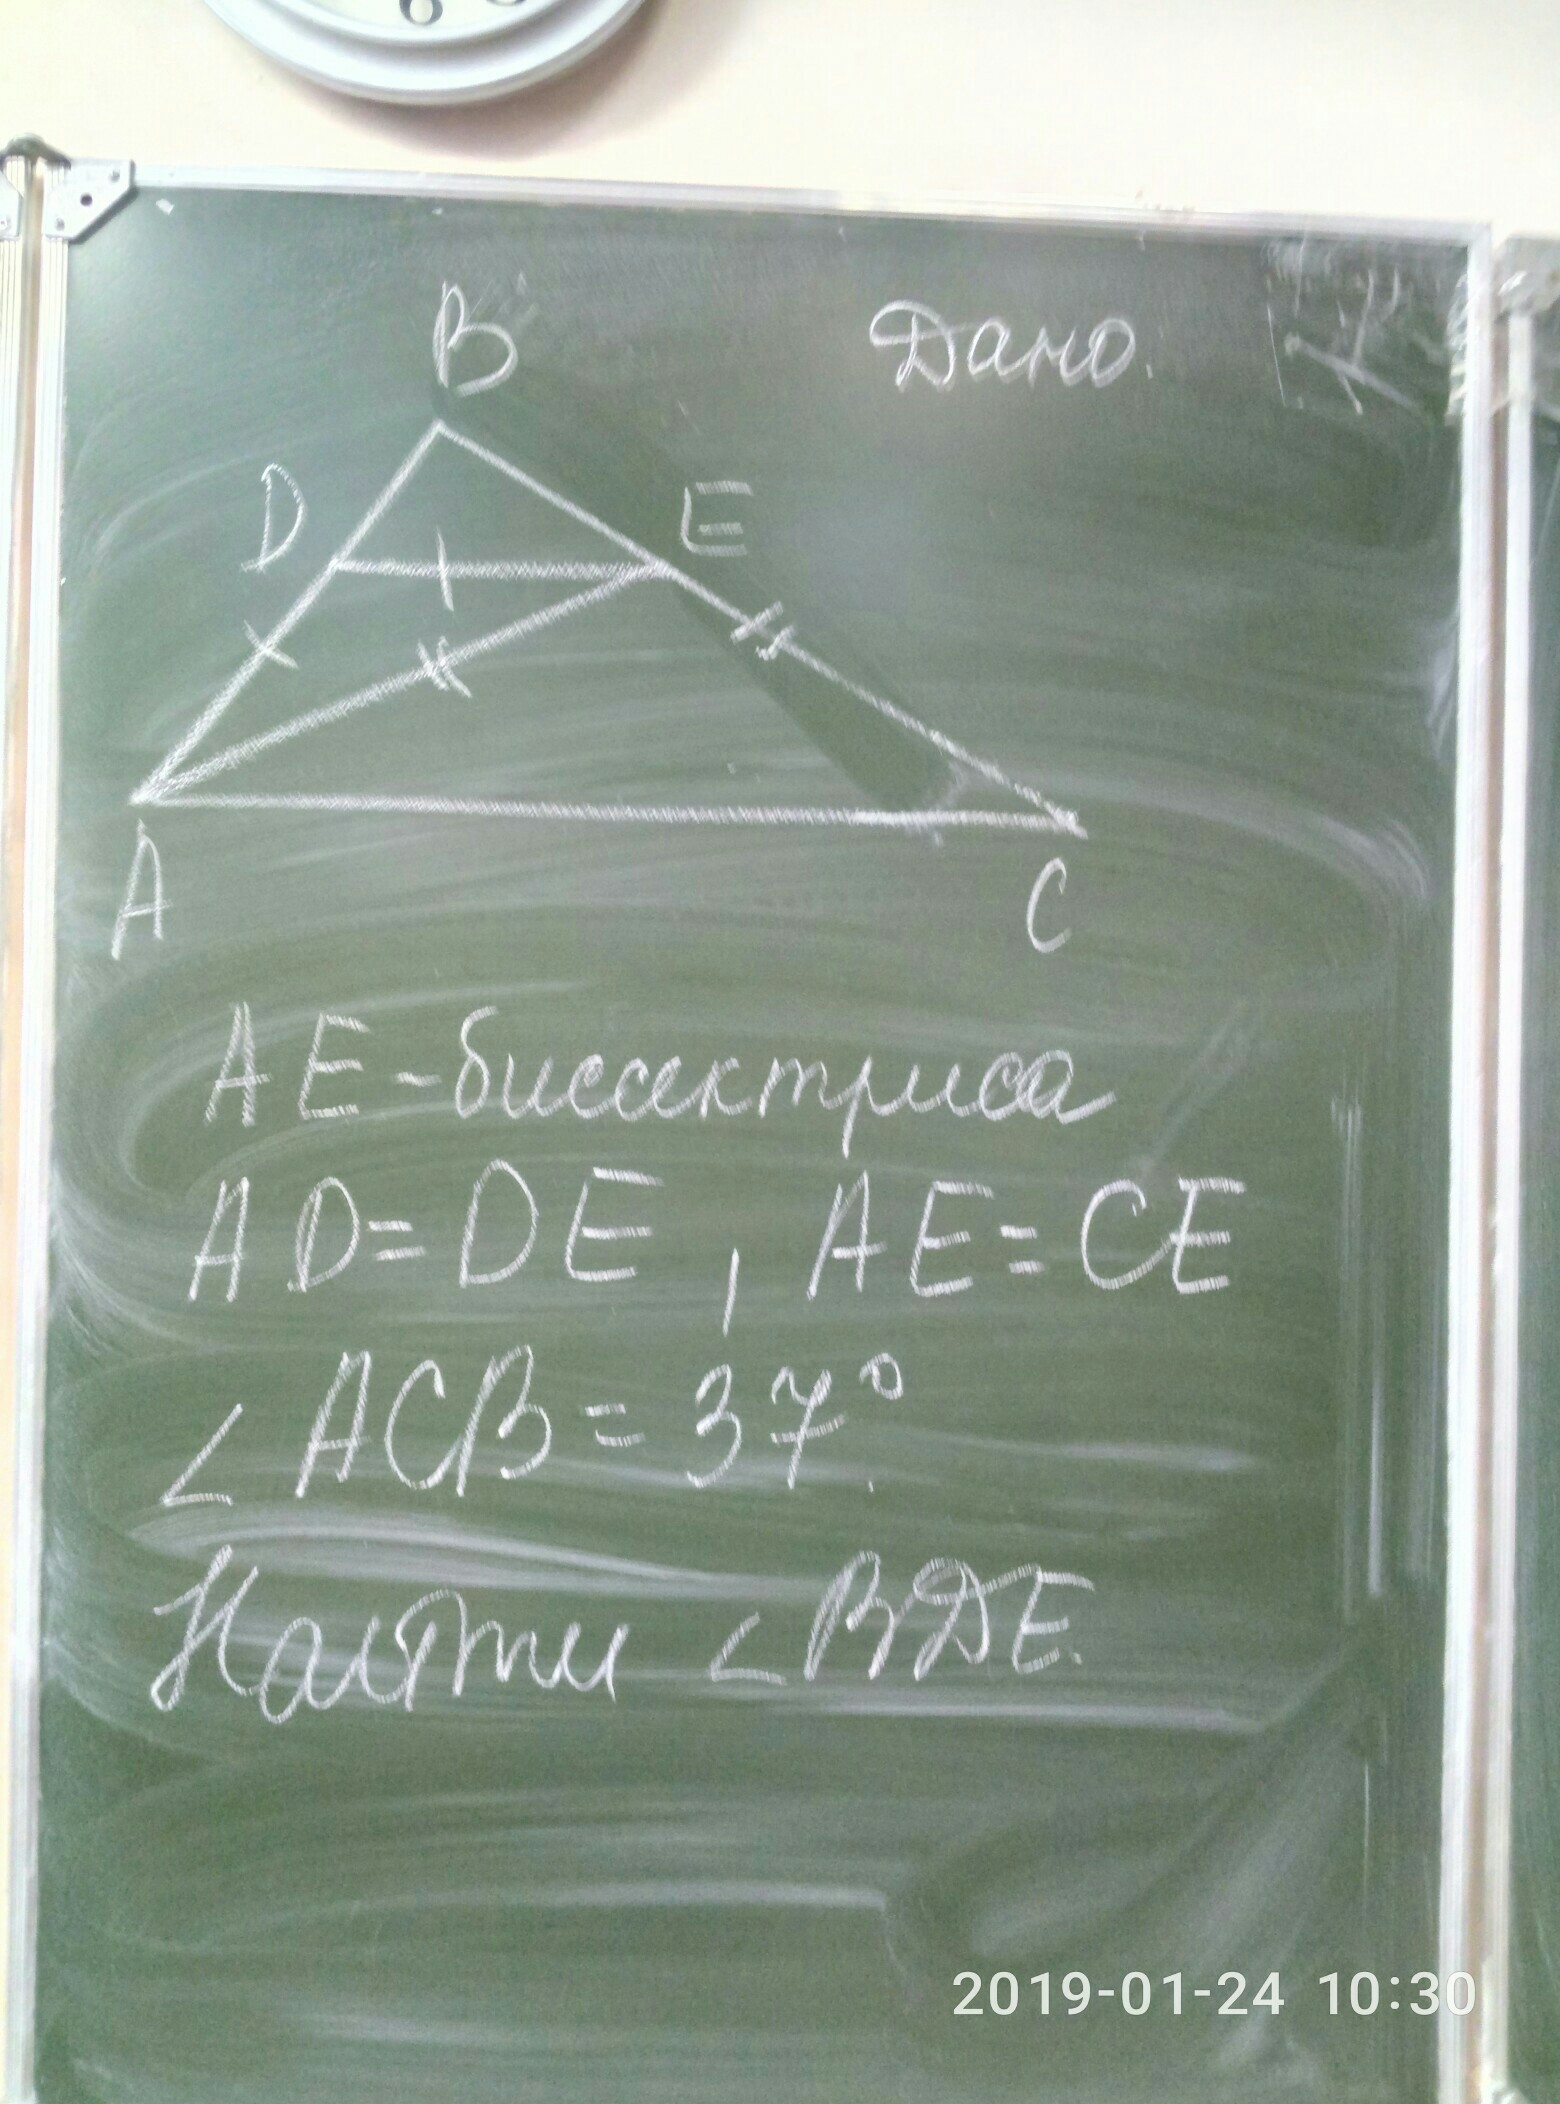 B
Дано.
D
E
A
C
AE-биссектриса
AD=DE, AE=CE
∠ACB=37°.
Найти ∠BDE.
2019-01-24 10:30